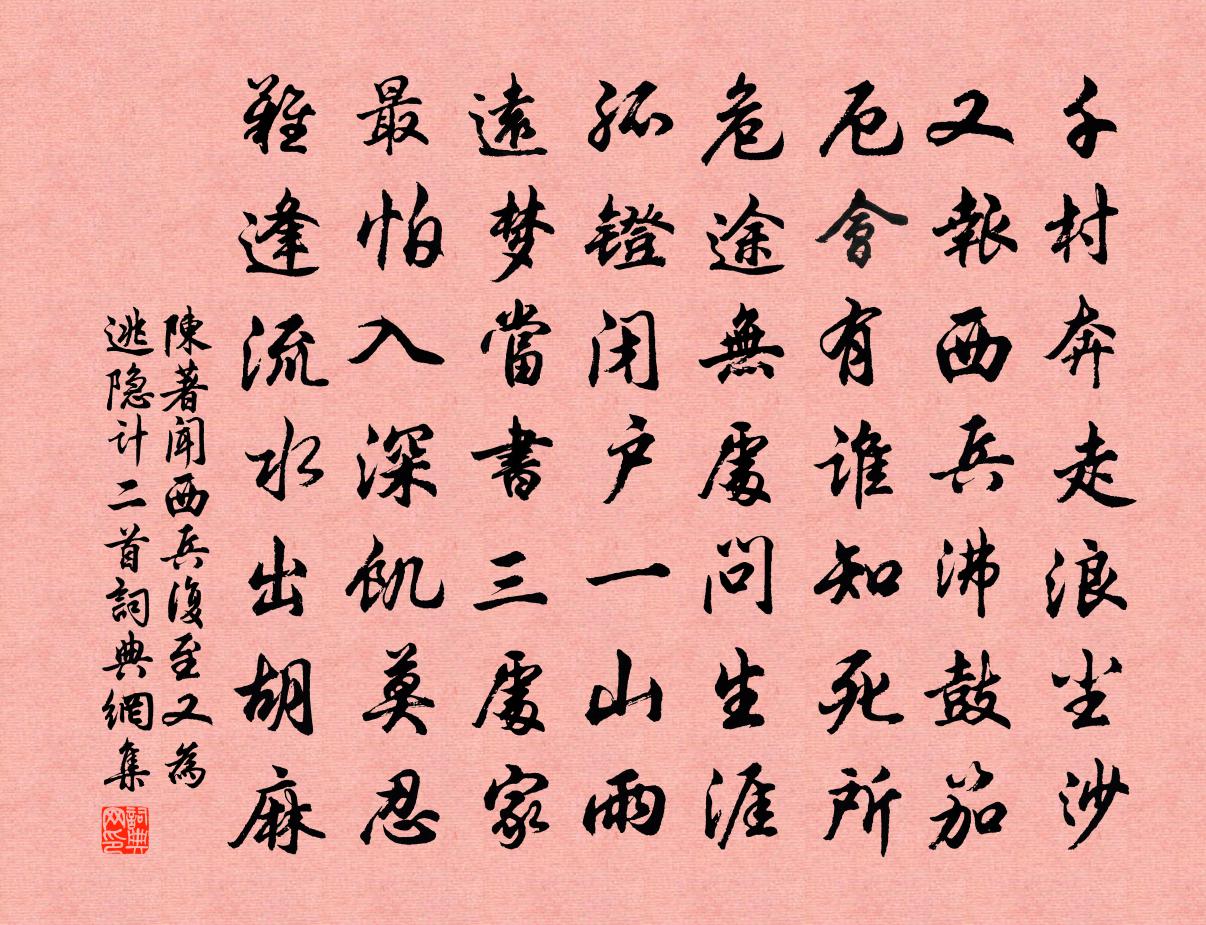 千村奔走浪尘沙
又報西兵沸鼓笳
厄會有谁知死所
危途無處問生涯
孤镫闭户一山雨
遠梦當書三處家
最怕入深飢莫忍
難逢流水出胡麻
陳著闻西兵復至又為
逃隐计二首詞典網集
詞典网印